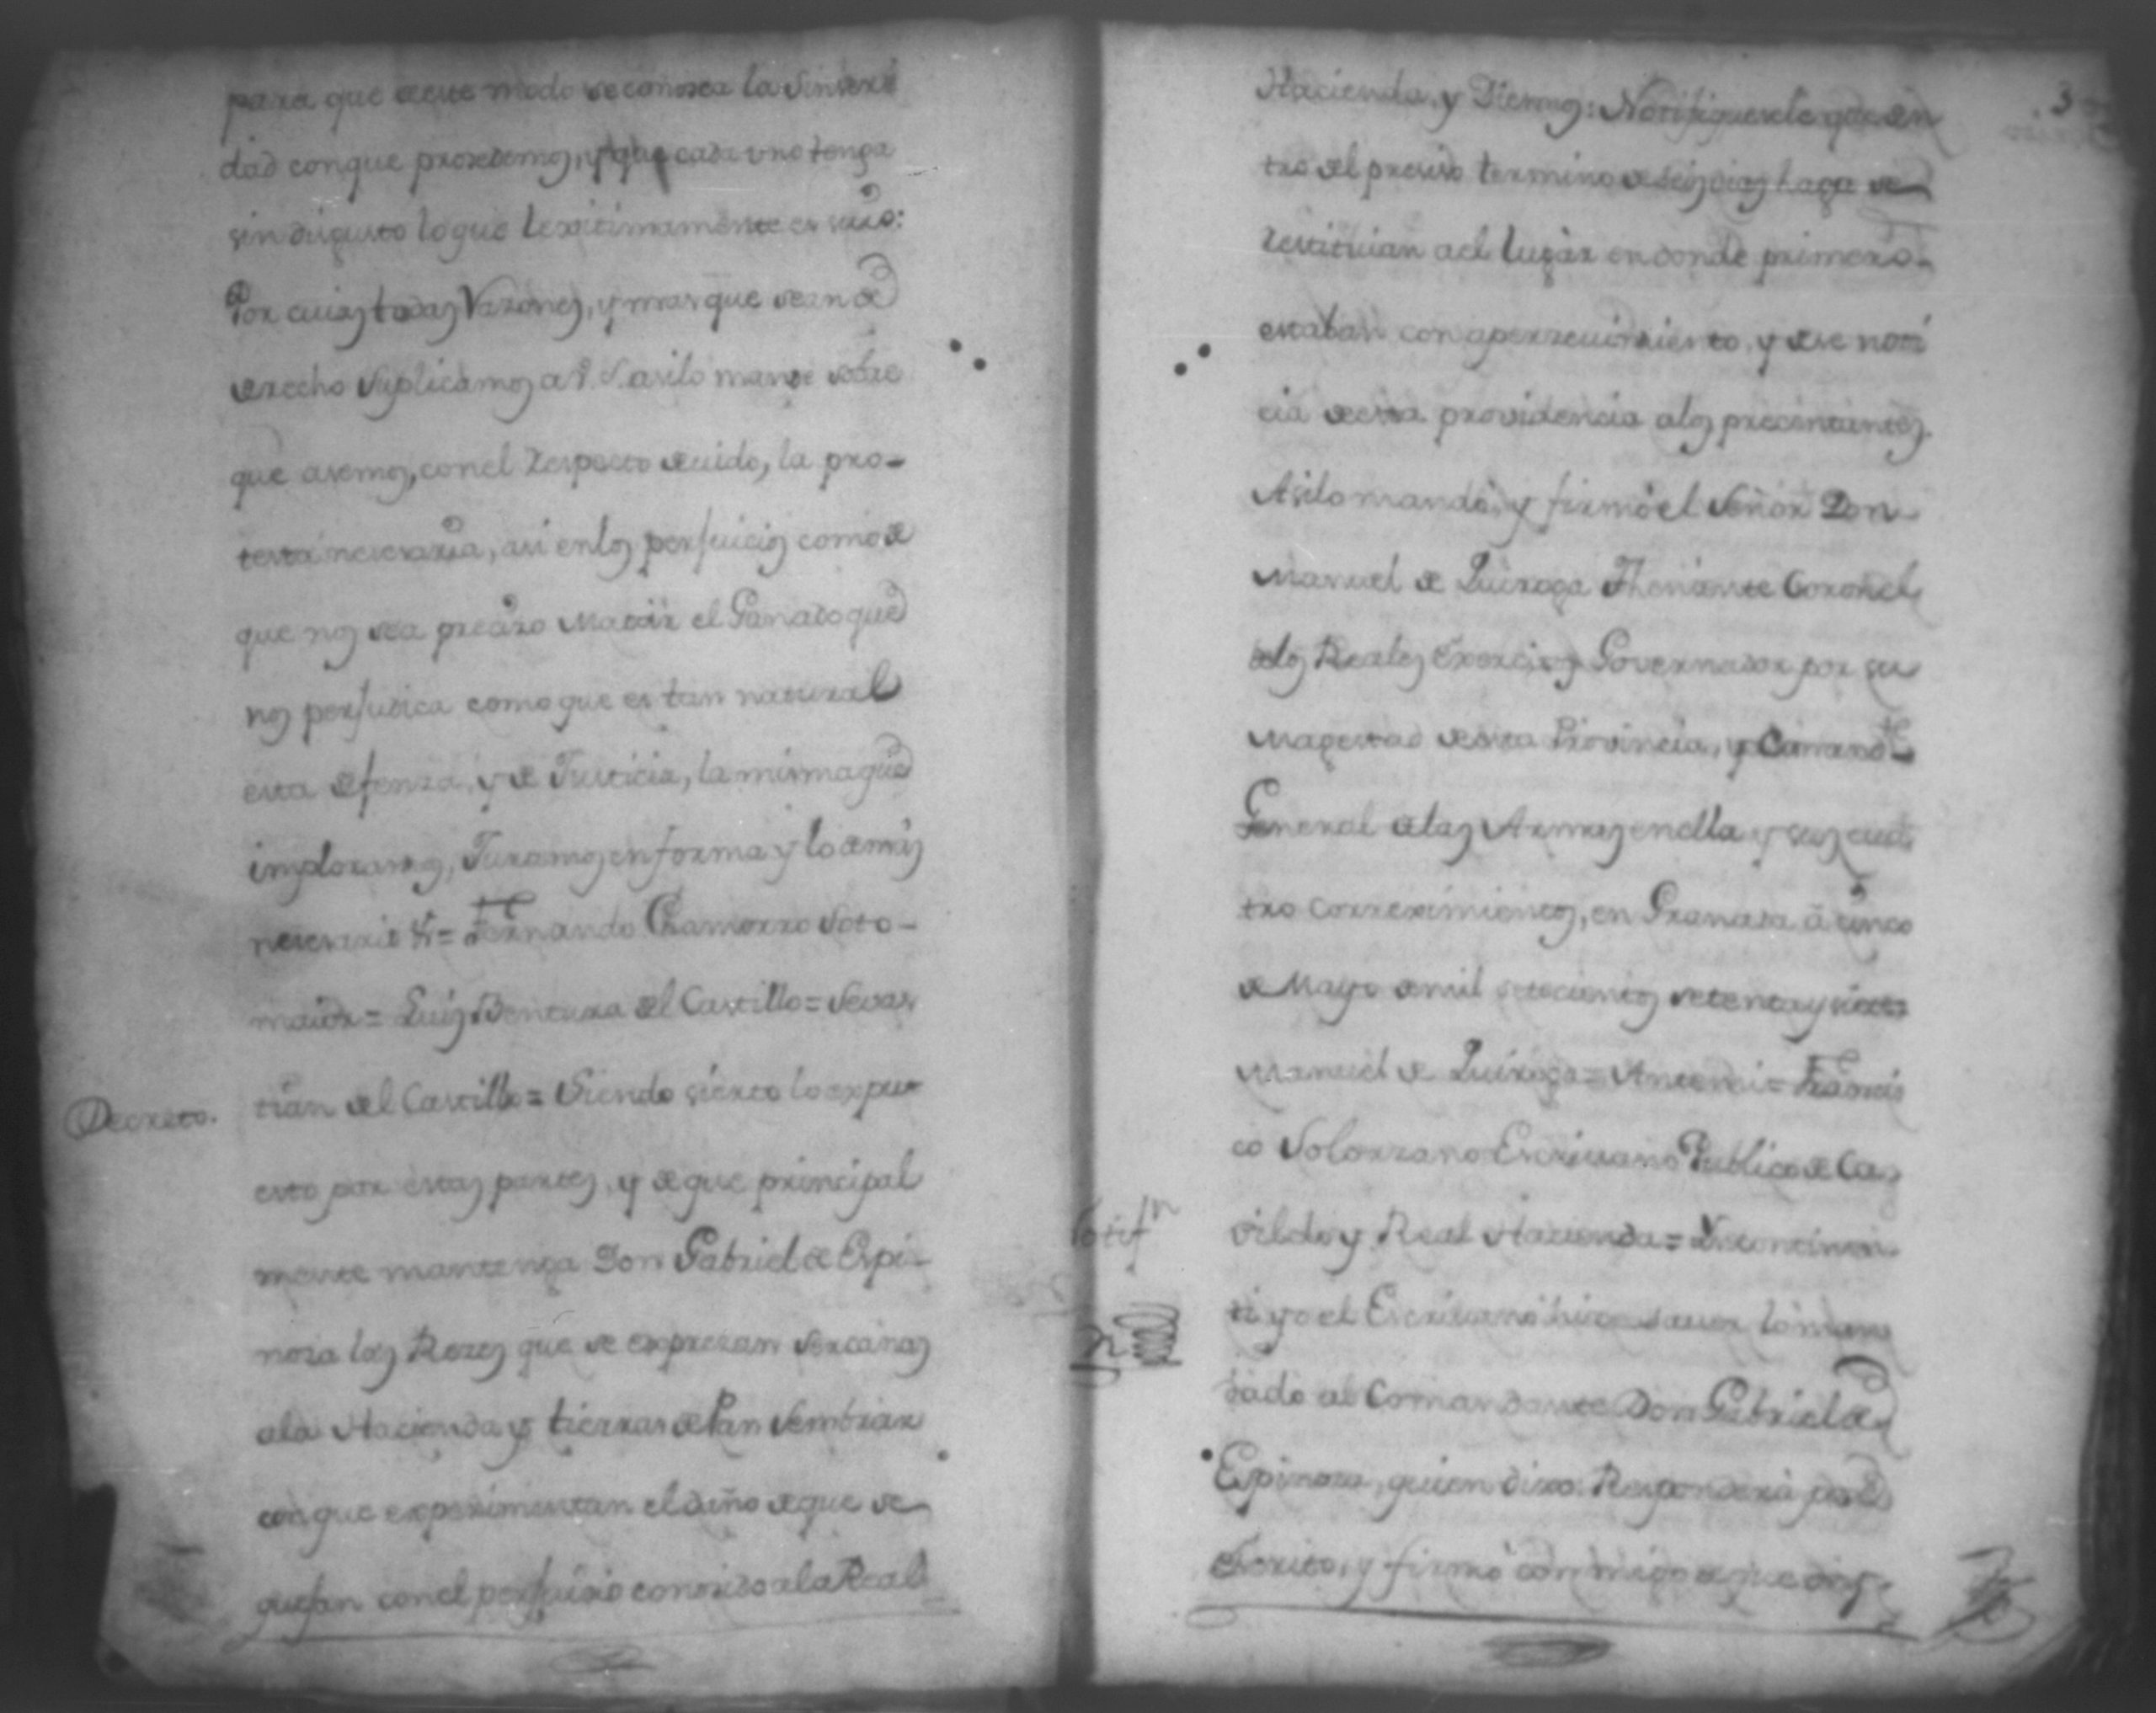 para que de este modo se conosca la sinseri
dad conque prosedemos, y que cada vno tenga
sin disgusto loque Lexitimamente es suio:
Por cuias todas Razones, y mas que sean de
derecho Suplicamos a V. S. asilo mande sobre
que asemos, conel respecto deuido, la pro-
testa nesesaria, asi enlos perjuicios como de
que nos sea presiso Matar el Ganado que
nos perjudica como que es tan natural
esta defenza, y de Justicia, la misma que
imploramos, Juramos en forma y lo demas
nesesario &ra = Fernando Chamorro Soto-
maior = Luis Bentura del Castillo = Sevas
Decreto. tian del Castillo = Siendo sierto lo expu
esto por estas partes, y de que principal
mente mantenga Don Gabriel de Espi-
nosa las Rezes que se exprezan sercanas
ala Hacienda y tierras de Pan Sembrar
conque experimentan el daño de que se
quejan conel perjuisio conosido ala Real
3
Hacienda, y Diesmos: Notifiquesele que den
tro del presiso termino de seis dias haga se
restituian ael lugar en donde primero
estaban con apersevimiento, y dese noti
cia de esta providencia alos precentantes.
Asilo mandó, y firmó el Señor Don
Manuel de Quiroga Theniente Coronel
delos Reales Exercitos Governador por su
Magestad de esta Provincia, y Comand.te
General delas Armas en ella y sus cua
tro correximientos, en Granada á cinco
de Mayo de mil setecientos setenta y siete
Manuel de Quiroga = Antemi = Francis
co Solorzano Escriuano Publico de Ca
Notif.n vildo y Real Hazienda = Yncontinen
ti yo el Escriuano hice sauer lo man
dado al Comandante Don Gabriel de
Espinosa, quien dixo: Responderá por
Escrito, y firmó conmigo de que doy